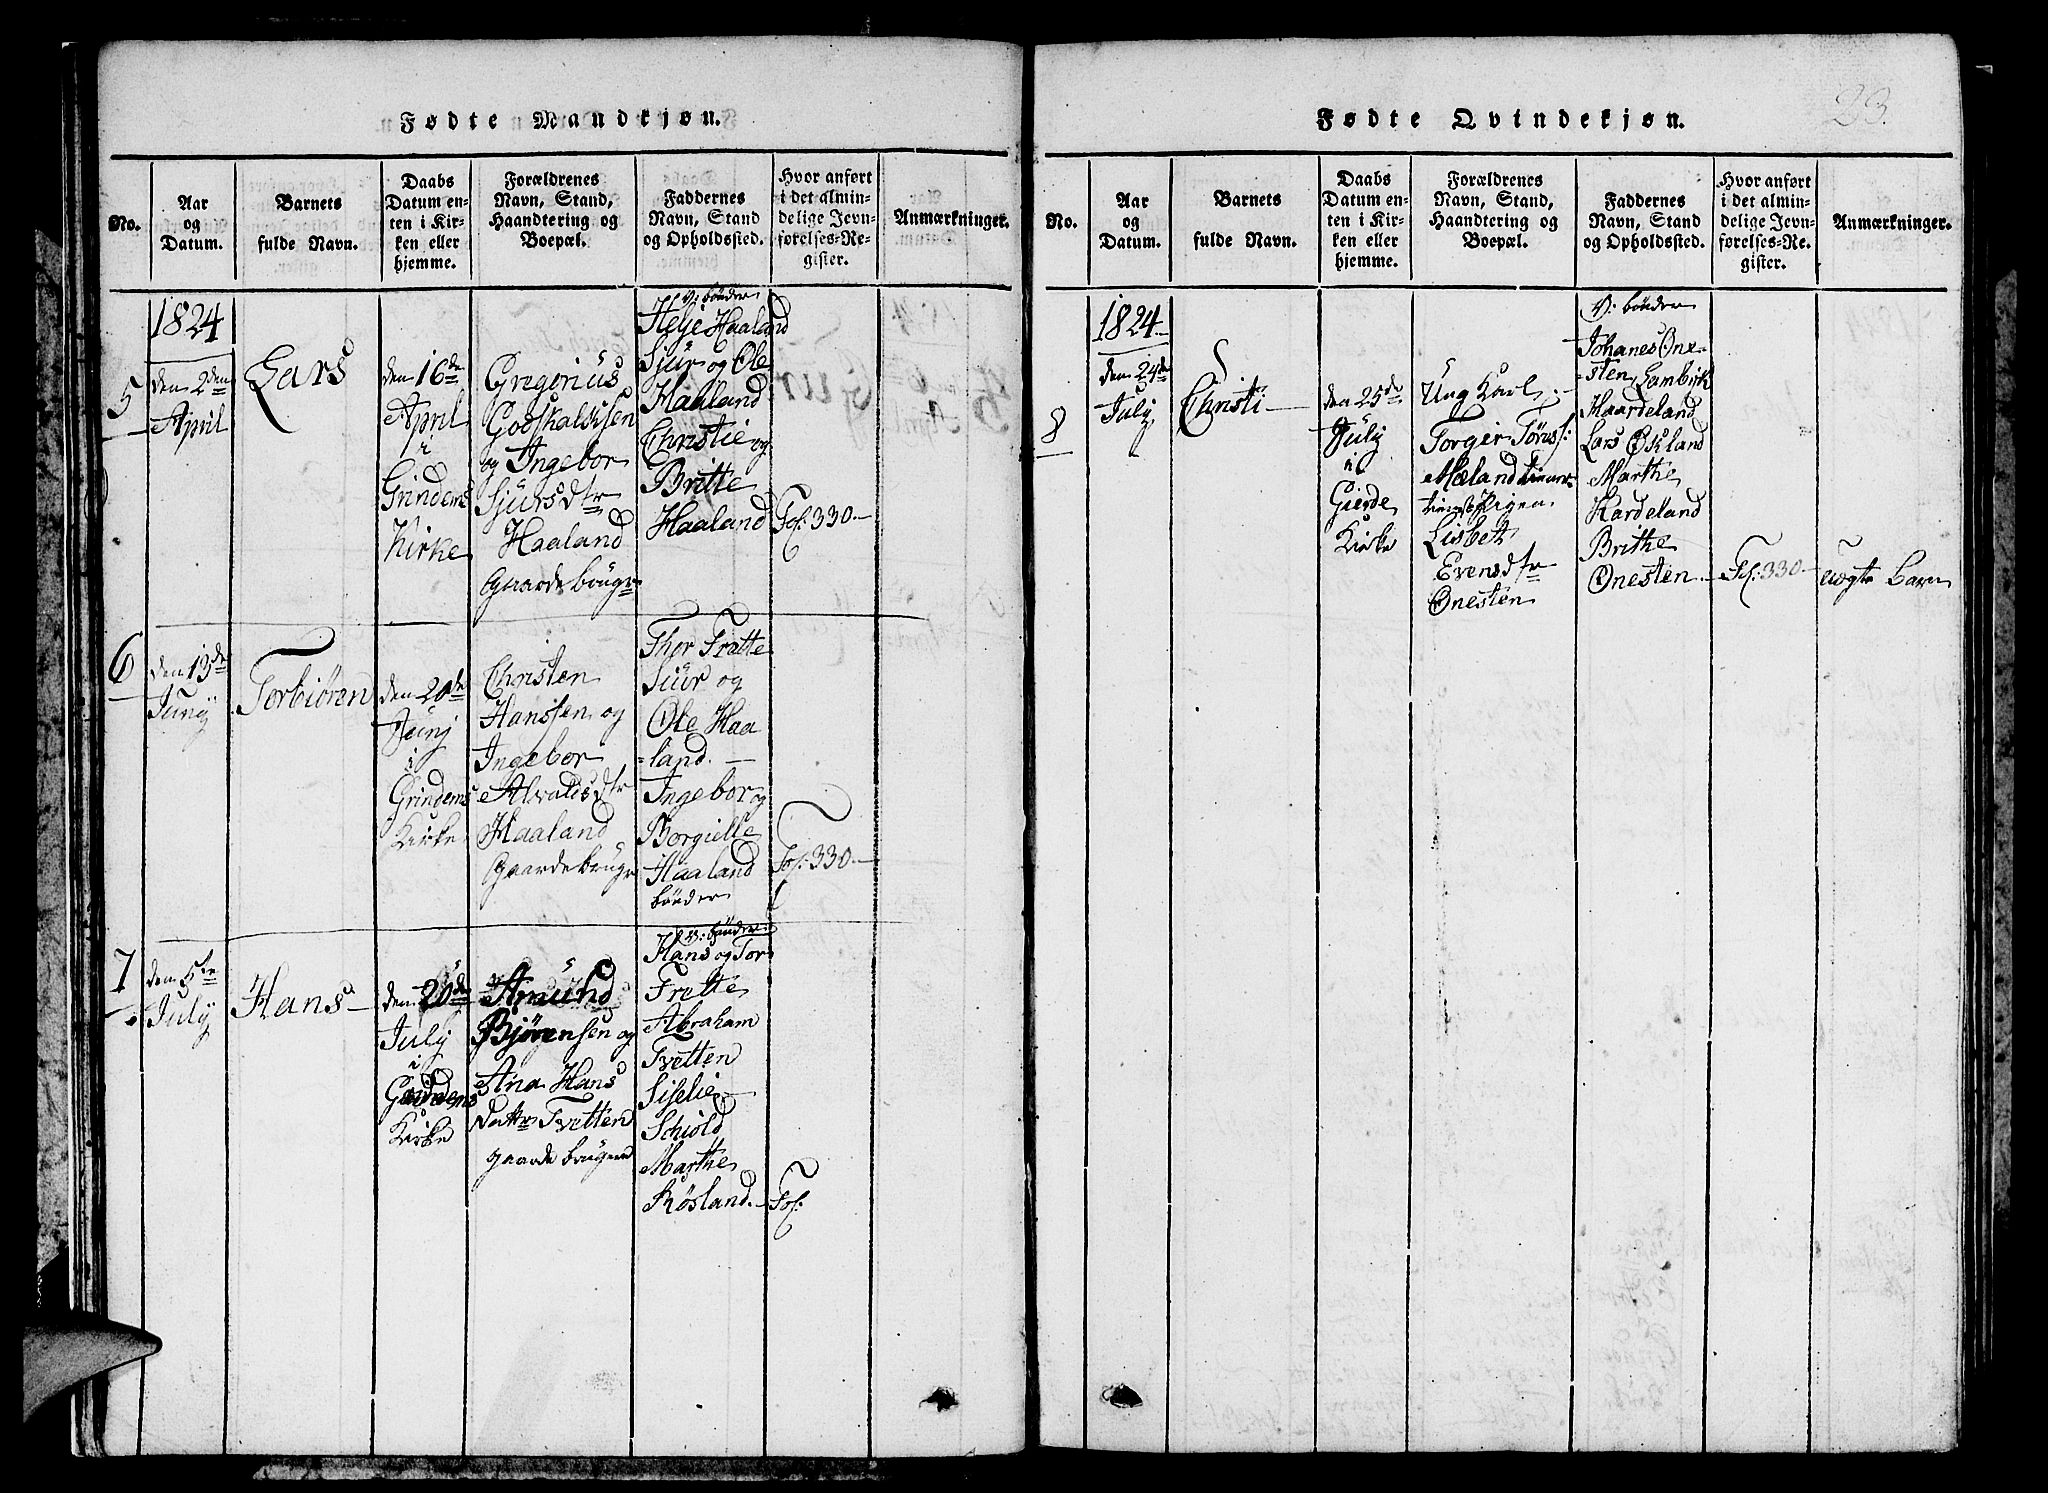 Fødte Mandkjøn.
No.
Aar
og
Datum.
Barnets
fulde Navn.
Daabs
Datum en-
ten i Kir-
ken eller
hjemme.
Forældrenes
Navn, Stand,
Haandtering og
Boepæl.
Faddernes
Navn, Stand
og Opholdssted.
Hvor anført
i det almin-
delige Jevn-
førelses-Re-
gister.
Anmærkninger.
1824
5
den 2den
April
Lars
den 16de
April
i
Grindens
Kirke
Gregorius
Godskalksen
og Ingebor
Sjursdtr
Haaland
Gaardebrugr
V: bönder
Helje Haaland
Sjur og Ole
Haaland
Christie og
Britte
Haaland
Fol: 330.
6
den 13de
Junij
Torbiören
den 20de
Junj
i
Grindens
Kirke
Christen
Hanssen og
Ingebor
Alvaldsdtr
Haaland
Gaardebrugr
Thor Frette
Siur og
Ole Haa
=land.
Ingebor og
Borgielle
Haaland
bönder
Fol: 330
7
den 5te
July
Hans
den 20de
July
i
Grindens
Kirke
Amund
Bjørensen og
Ana Hans
Dattr Tvetten
gaardebrugere
V: bönder
Hans og Tor
Frette
Abraham
Tvetten
Siselie
Schiold
Marthe
Røsland.
Fol:
Fødte Qvindekjøn.
23.
No.
Aar
og
Datum.
Barnets
fulde Navn.
Daabs
Datum en-
ten i Kir-
ken eller
hjemme.
Forældrenes
Navn, Stand,
Haandtering og
Boepæl.
Faddernes
Navn, Stand
og Opholdssted.
Hvor anført
i det almin-
delige Jevn-
førelses-Re-
gister.
Anmærkninger.
1824
8
den 24de
July
Christi
den 25de
July
i
Gierde
Kirke
Ung Karl
Torger Törisf:
Mæland
Pigen
Lisbet
Evensdtr
Onesten
V: bönder
Johanes One=
=sten, Lambrik
Haardeland
Lars Økland
Marthe
Hardeland
Brithe
Onesten.
Fol: 330
uægte Barn